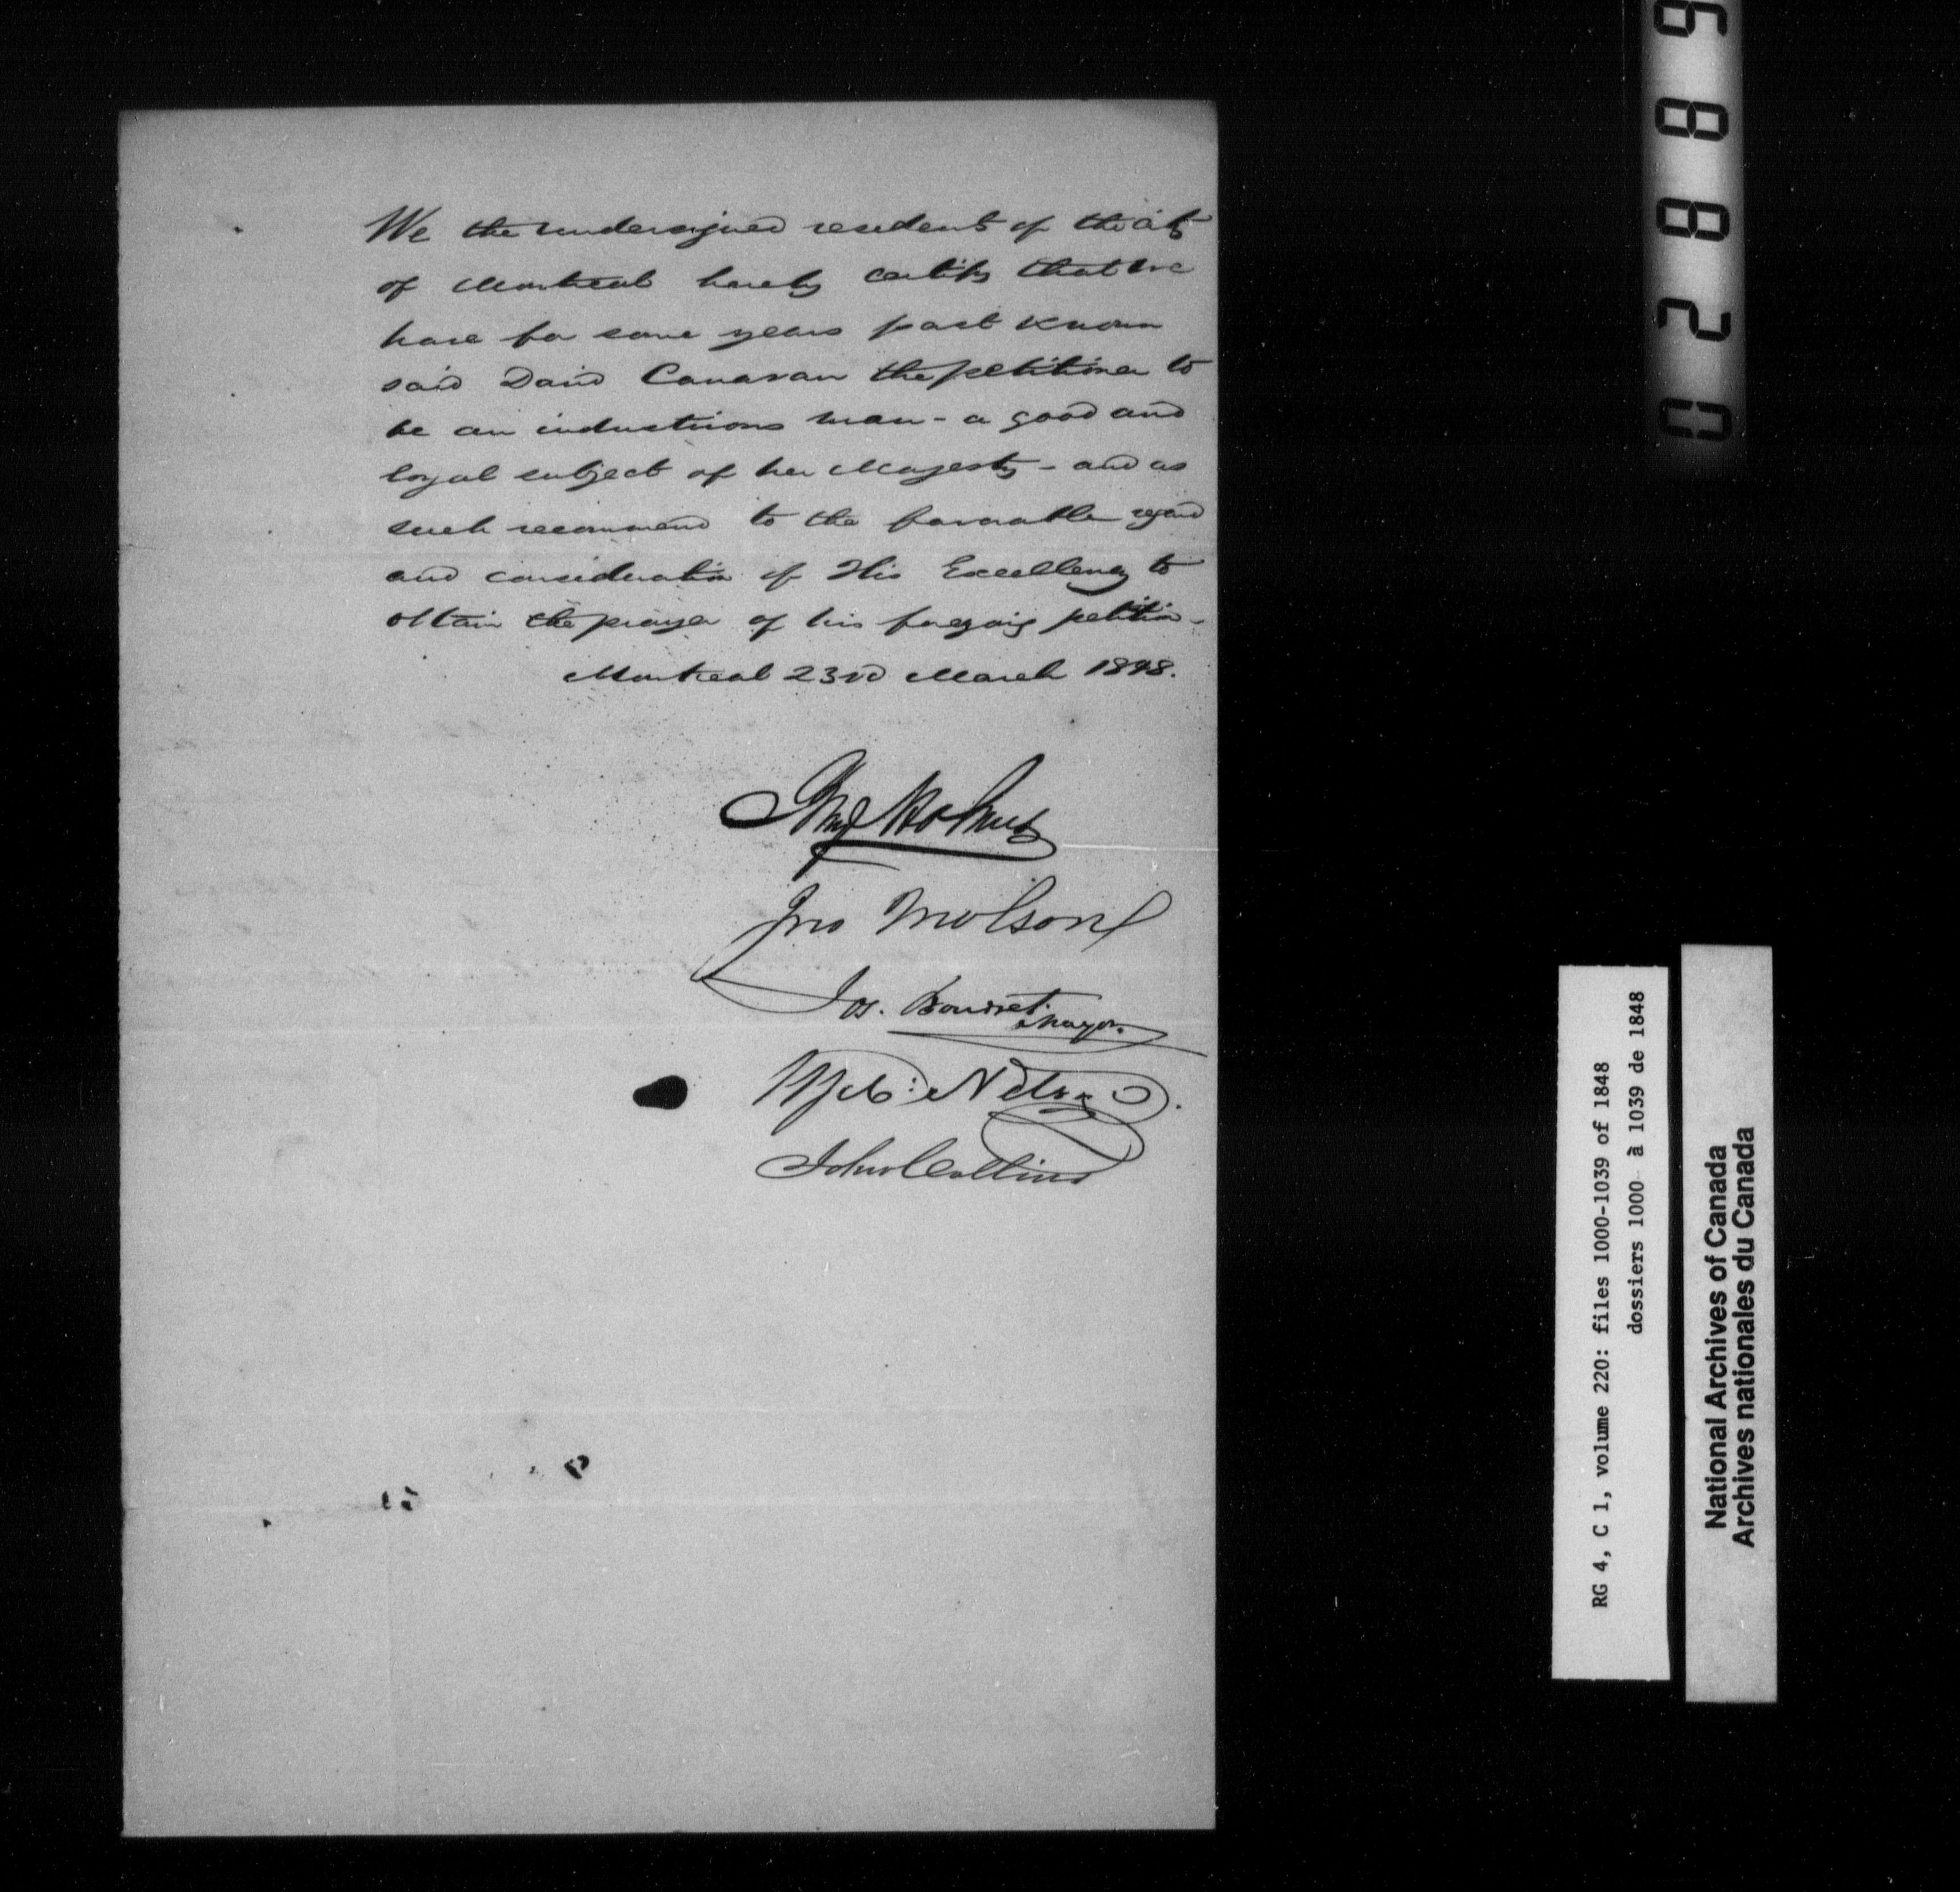 We the undersigned resident of the City
of Montreal hereby certify that we
have for some years past known
said David Canavan the petitioner to
be an industrious man - a good and
loyal subject of her Majesty - and as
such recommend to the favorable regard
and consideration of His Excellency to
obtain the prayer of his foregoing petition -
Montreal 23rd March 1848.
Benj Holmes
Jno Molson
Jos. Bourret
Mayor.
Wolfred Nelson
John Collins
02889
RG 4, C 1, volume 220: files 1000-1039 of 1848
dossiers 1000 à 1039 de 1848
National Archives of Canada
Archives nationales du Canada